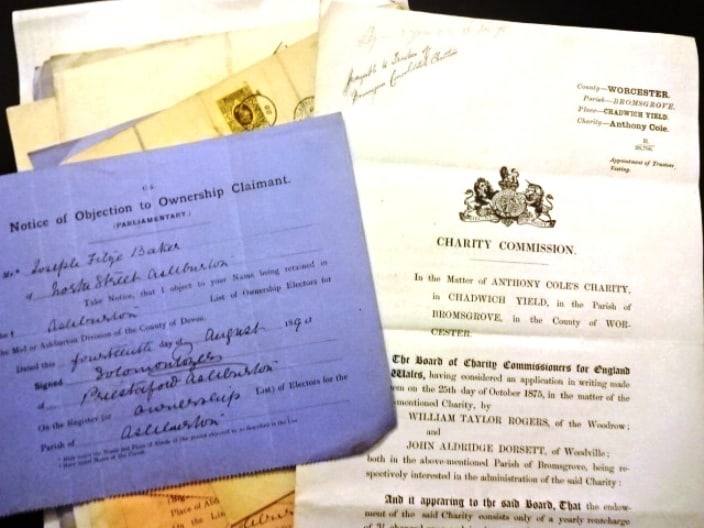 C 6.
Notice of Objection to Ownership Claimant.
(PARLIAMENTARY)
Mr. Joseph Baker
of North Street Ashburton
Take Notice, that I object to your Name being retained in
Ashburton List of Ownership Electors for
The Mid or Ashburton Division of the County of Devon.
Dated this fourteenth day of August 1890
Signed Solomon
of Priestaford Ashburton
On the Register for ownership List) of Electors for the
Parish of Ashburton
Payable to Trustees of
Bromsgrove Consolidated Charities
County—WORCESTER.
Parish—BROMSGROVE.
Place—CHADWICH YIELD.
Charity—Anthony Cole.
Appointment of Trustees,
Vesting.
CHARITY COMMISSION.
In the Matter of ANTHONY COLE'S CHARITY,
in CHADWICH YIELD, in the Parish of
BROMSGROVE, in the County of WOR-
CESTER.
The Board of Charity Commissioners for England
Wales, having considered an application in writing made
em on the 25th day of October 1875, in the matter of the
mentioned Charity, by
WILLIAM TAYLOR ROGERS, of the Woodrow;
and
JOHN ALDRIDGE DORSETT, of Woodville;
both in the above-mentioned Parish of Bromsgrove, being re-
spectively interested in the administration of the said Charity:
And it appearing to the said Board, That the endow-
ment of the said Charity consists only of a yearly rentcharge
Place of Ab
On the Lis